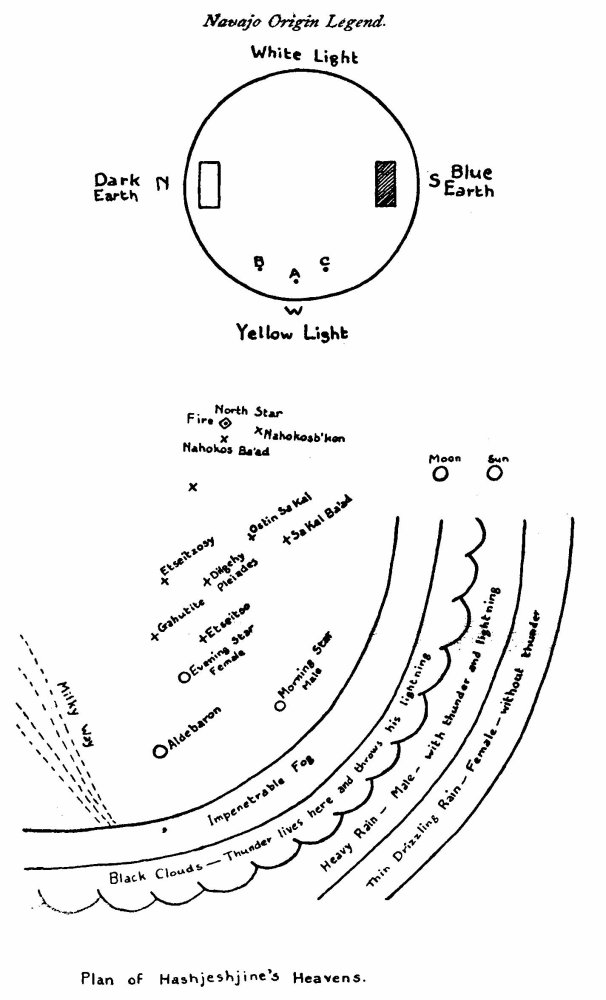 Navajo Origin Legend.
White Light
Dark
Earth
N
S
Blue
Earth
B
A
C
W
Yellow Light
North Star
Fire
Nahokosb'kon
Nahokos Ba'ad
Moon
Sun
Oetin Sa Kal
Sa Kal Ba'ad
Etseitzosy
Dilgehy
Pleiades
Gahutite
Etseitso
Evening Star
Female
Morning Star
Male
Milky Way
Aldebaron
Impenetrable Fog
Black Clouds — Thunder lives here and throws his lightning
Heavy Rain — Male — with thunder and lightning
Thin Drizzling Rain — Female — without thunder
Plan of Hashjeshjine's Heavens.